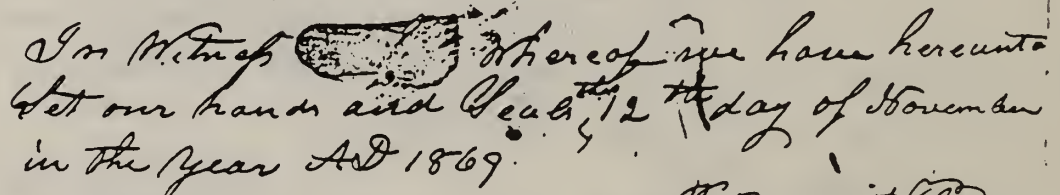 In Witness Whereof we have hereunto
Set our hands and Seals this 12th day of November
in the year AD 1869